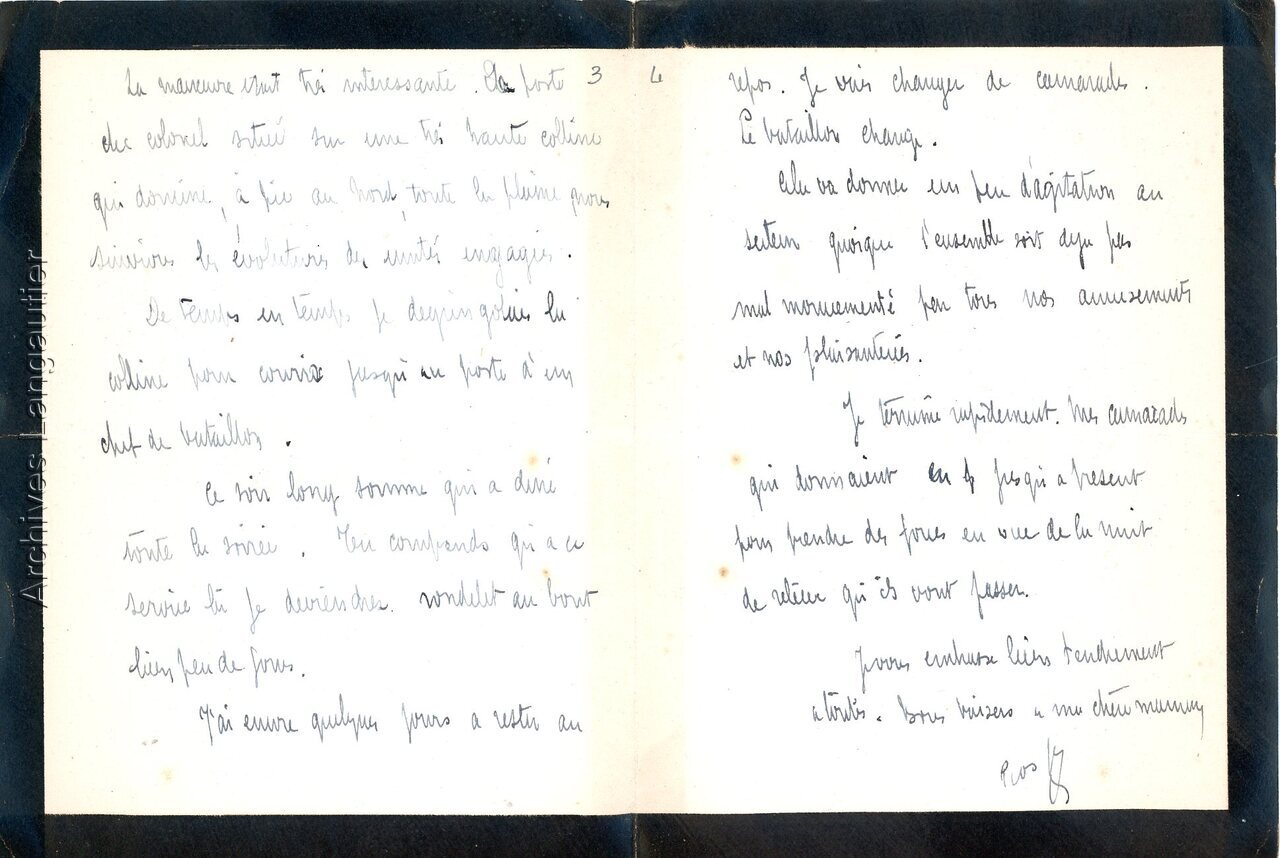 3
La maneuvre etait très interessante. Du poste
du colonel situé sur une très haute colline
qui domine, à pic au nord, toute la plaine nous
suivions les évolutions des unités engagées.
De temps en temps je degringolais la
colline pour courir jusqu'au poste d'un
chef de bataillon.
Ce soir long somme qui a duré
toute la soirée. Tu comprends qu'a ce
service là je deviendrai rondelet au bout
bien peu de jours.
J'ai encore quelques jours a rester au
4
repos. Je vais changer de camarades.
Le bataillon change.
Cela va donner un peu d'agitation au
secteur quoique l'ensemble soit deja pas
mal mouvementé par tous nos amusements
et nos plaisanteries.
Je termine rapidement. Mes camarades
qui dormaient jusqu'a present
pour prendre des forces en vue de la nuit
de releve qu'ils vont passer.
Je vous embrasse biens tendrement
a toutes. Bons baisers a ma chère maman
Archives Langautier